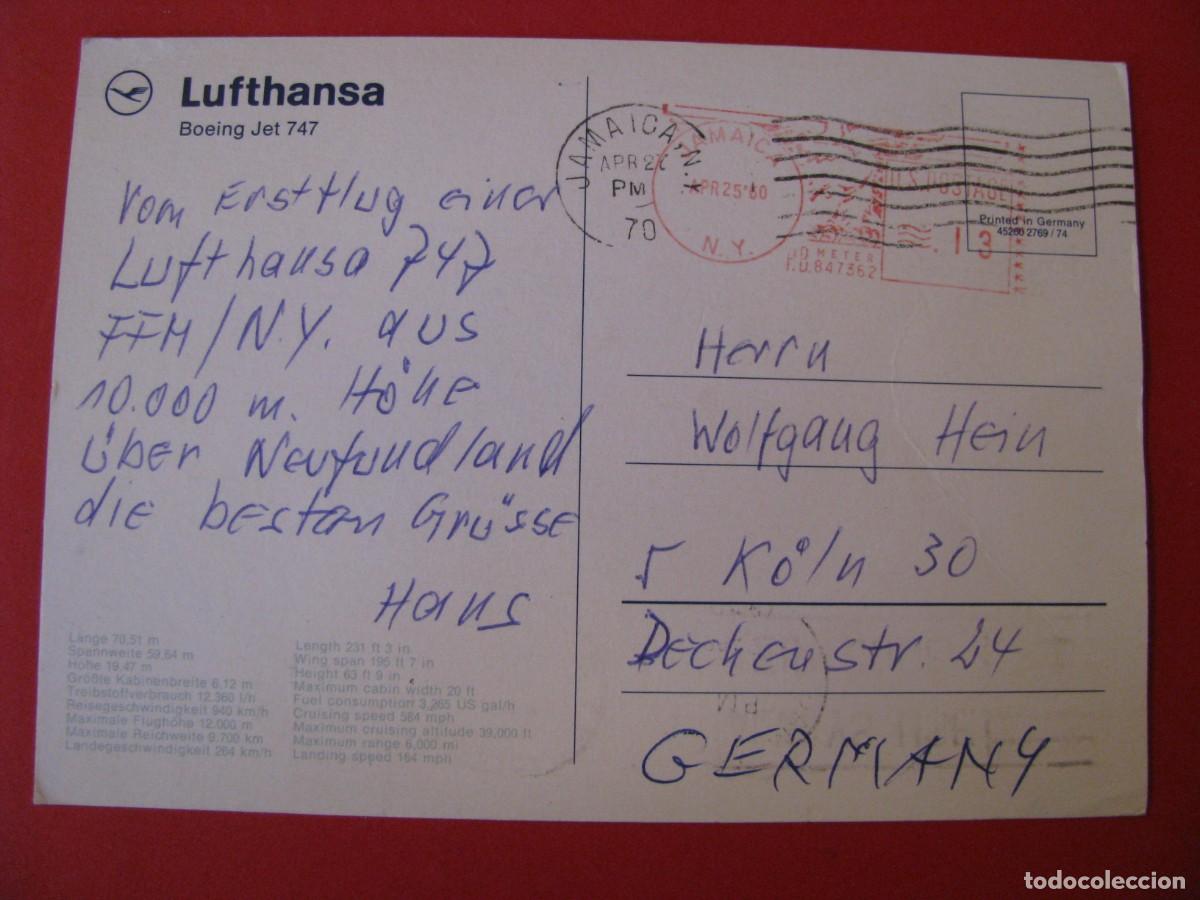 Lufthansa
Boeing Jet 747
Vom Erstflug einer
Lufthansa 747
FFM/N.Y. aus
10.000 m. Höhe
über Neufundland
die besten Grüsse
Hans
Länge 70,51 m
Spannweite 59,64 m
Höhe 19,47 m
Größte Kabinenbreite 6,12 m
Treibstoffverbrauch 12.360 l/h
Reisegeschwindigkeit 940 km/h
Maximale Flughöhe 12.000 m
Maximale Reichweite 9.700 km
Landegeschwindigkeit 264 km/h
Length 231 ft 3 in
Wing span 195 ft 7 in
Height 63 ft 9 in
Maximum cabin width 20 ft
Fuel consumption 3,265 US gal/h
Cruising speed 584 mph
Maximum cruising altitude 39,000 ft
Maximum range 6,000 mi
Landing speed 164 mph
JAMAICA, N.Y.
APR 2
PM
70
JAMAICA
APR 25
N.Y.
U.S. POSTAGE
.13
METER
847362
Printed in Germany
2769/74
Herrn
Wolfgang Hein
5 Köln 30
Dechenstr. 24
GERMANY
PM
todocoleccion